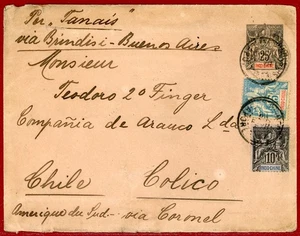 Per "Tanais"
via Brindisi - Buenos Aires
Monsieur
Teodoro 2º Finger
Compañia de Arauco Lda
Chile Colico
Amerique du Sud - via Coronel
25
10